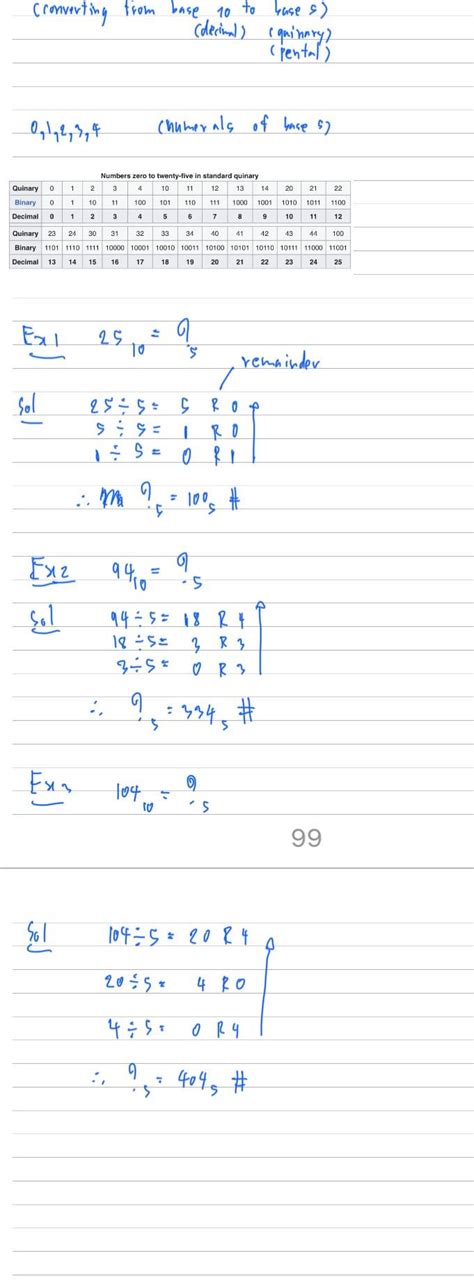 (converting from base 10 to base 5)
(decimal) (quinary)
(pental)
0,1,2,3,4 (numerals of base 5)
Numbers zero to twenty-five in standard quinary
Quinary 0 1 2 3 4 10 11 12 13 14 20 21 22
Binary 0 1 10 11 100 101 110 111 1000 1001 1010 1011 1100
Decimal 0 1 2 3 4 5 6 7 8 9 10 11 12
Quinary 23 24 30 31 32 33 34 40 41 42 43 44 100
Binary 1101 1110 1111 10000 10001 10010 10011 10100 10101 10110 10111 11000 11001
Decimal 13 14 15 16 17 18 19 20 21 22 23 24 25
Ex1 25₁₀ = ?₅
remainder
Sol 25÷5= 5 R 0
5÷5= 1 R 0
1÷5= 0 R 1
∴ ?₅ = 100₅ #
Ex2 94₁₀ = ?₅
Sol 94÷5= 18 R 4
18÷5= 3 R 3
3÷5= 0 R 3
∴ ?₅ = 334₅ #
Ex3 104₁₀ = ?₅
99
Sol 104÷5= 20 R 4
20÷5= 4 R 0
4÷5= 0 R 4
∴ ?₅ = 404₅ #